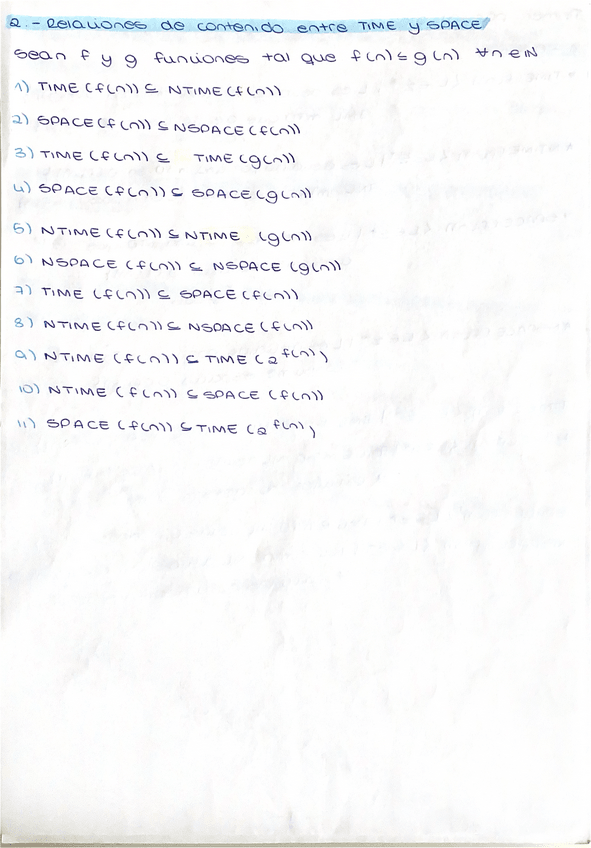 2.- Relaciones de contenido entre TIME y SPACE
Sean f y g funciones tal que f(n) ≤ g(n) ∀n ∈ IN
1) TIME (f(n)) ⊆ NTIME (f(n))
2) SPACE (f(n)) ⊆ NSPACE (f(n))
3) TIME (f(n)) ⊆ TIME (g(n))
4) SPACE (f(n)) ⊆ SPACE (g(n))
5) NTIME (f(n)) ⊆ NTIME (g(n))
6) NSPACE (f(n)) ⊆ NSPACE (g(n))
7) TIME (f(n)) ⊆ SPACE (f(n))
8) NTIME (f(n)) ⊆ NSPACE (f(n))
9) NTIME (f(n)) ⊆ TIME (2^f(n))
10) NTIME (f(n)) ⊆ SPACE (f(n))
11) SPACE (f(n)) ⊆ TIME (2^f(n))